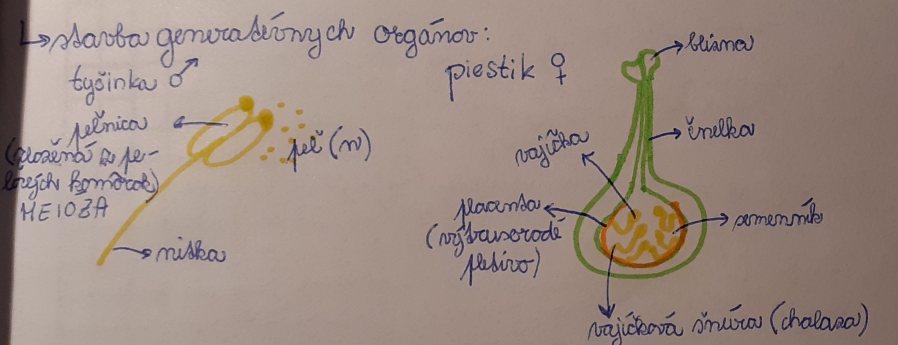 ↳ stavba generatívnych orgánov:
tyčinka ♂
peľnica
(zložená zo pe-
ľových komôrok)
MEIÓZA
peľ (n)
nitka
piestik ♀
blizna
čnelka
vajíčka
placenta
(výživorodé
pletivo)
semenník
vajíčková šnúra (chalaza)